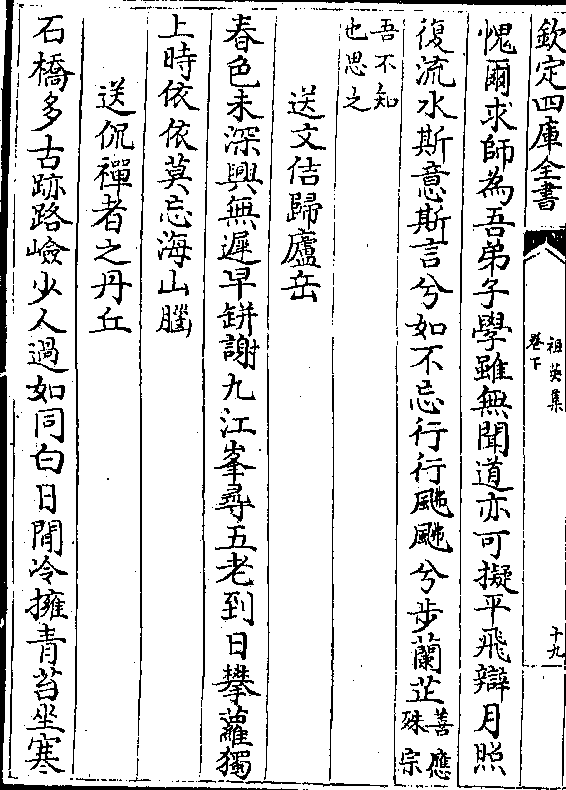 欽定四庫全書
祖英集
卷下
十九
愧爾求師為吾弟子學雖無聞道亦可擬平飛辯月照
復流水斯意斯言兮如不忘行行颺颺兮步蘭芷善應
殊宗
吾不知
也思之
送文佶歸廬岳
春色未深興無遲早缾謝九江峯尋五老到日攀蘿獨
上時依依莫忘海山腦
送侃禪者之丹丘
石橋多古跡路嶮少人過如同白日閒冷擁青苔坐寒